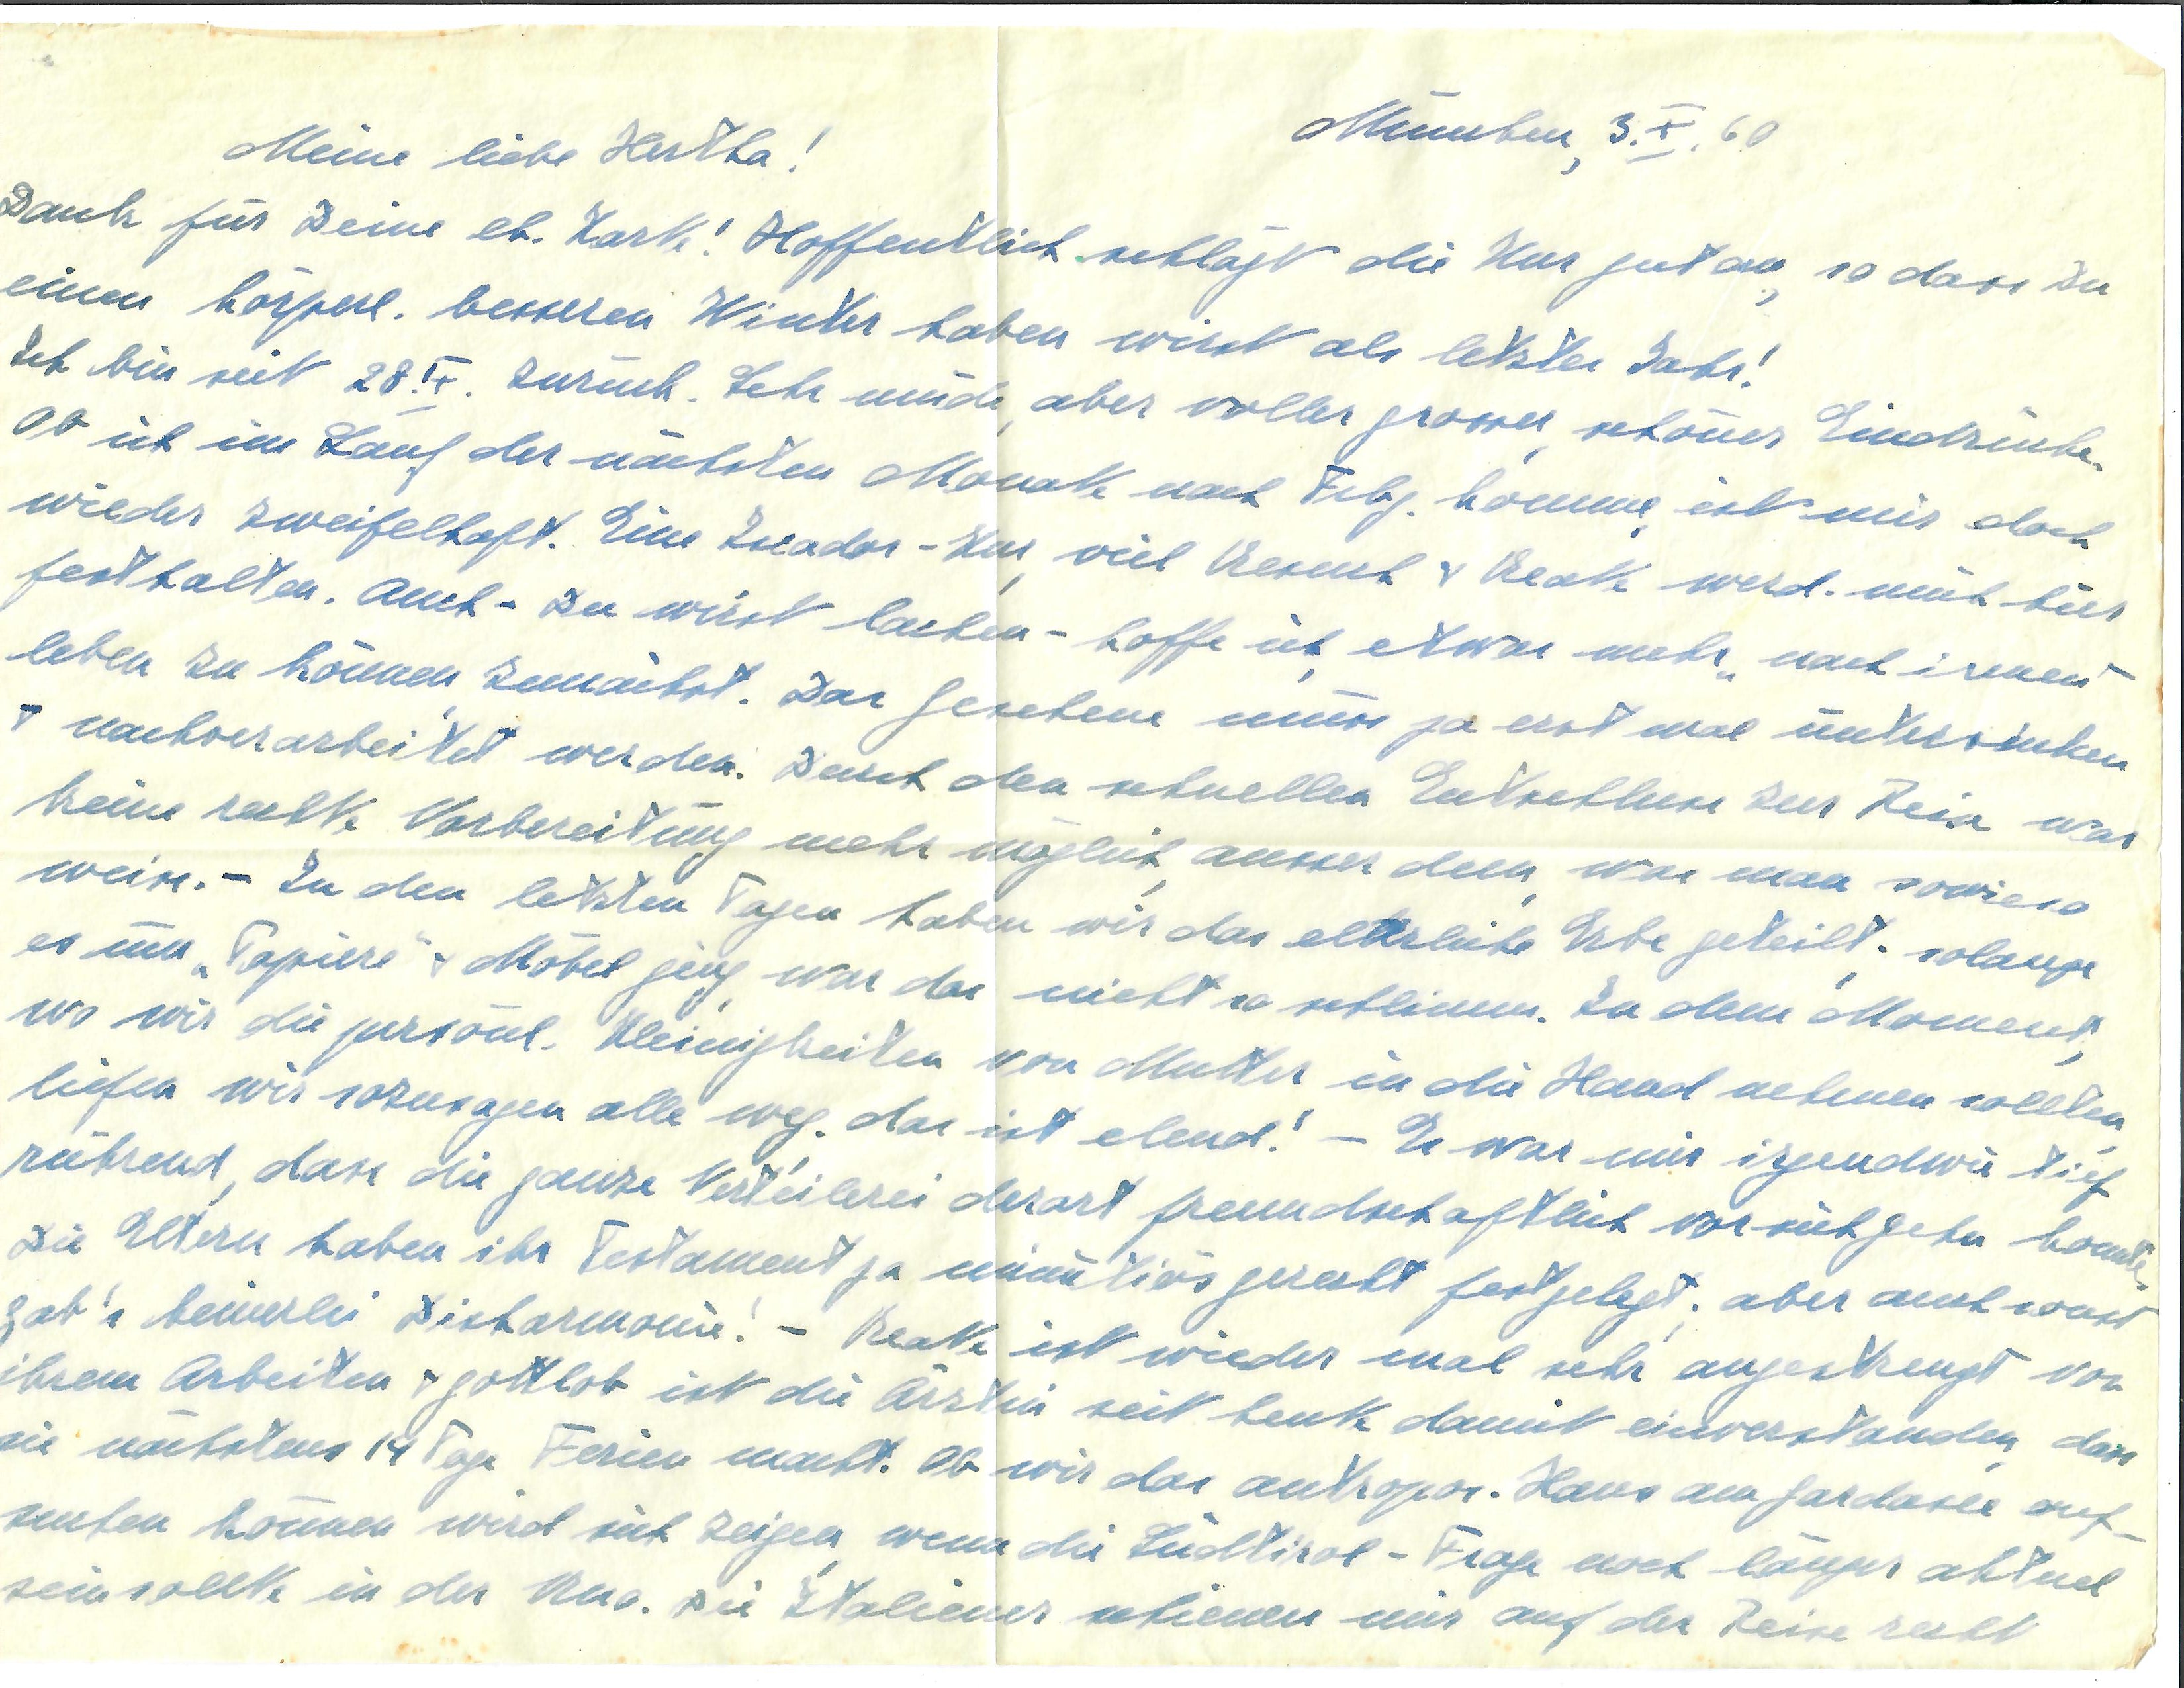 München, 3.X.60
Meine liebe Hertha!
Dank für Deine lb. Karte! Hoffentlich schlägt die Kur gut an, so dass Du
einen körperl. besseren Winter haben wirst als letztes Jahr!
Ich bin seit 28.IX. zurück. Sehr müde, aber voller grosser, schöner Eindrücke.
Ob ich im Lauf der nächsten Monate nach Frbg. komme, ist mir doch
wieder zweifelhaft. Eine Kur, viel Besuch & Beate werd. mich hier
festhalten. Auch - Du wirst lachen - hoffe ich, etwas mehr „nach innen"
leben zu können, zunächst. Das Gesehene muss ja erst mal untersinken
& nachverarbeitet werden. Durch den schnellen Entschluss zur Reise war
keine rechte Vorbereitung mehr möglich, ausser dem, was man sowieso
weiss. - In den letzten Tagen haben wir das elterliche Erbe geteilt. solange
es um „Papiere" & Möbel ging, war das nicht so schlimm. In dem Moment,
wo wir die persönl. Kleinigkeiten von Mutter in die Hand nehmen sollten,
liefen wir sozusagen alle weg. das ist elend! - Es war mir irgendwie tief
rührend, dass die ganze Verteilerei derart freundschaftlich vor sich gehn konnte.
Die Eltern haben ihr Testament ja minutiös gerecht festgelegt; aber auch sonst
gab's keinerlei Disharmonie! - Beate ist wieder mal sehr angestrengt von
ihrem Arbeiten & gottlob ist die Ärztin seit heute damit einverstanden, dass
sie nächstens 14 Tage Ferien macht. Ob wir das antropos. Haus am Gardasee auf-
suchen können wird sich zeigen, wenn die Südtirol-Frage noch länger aktuel
sein sollte in der Uno. Die Italiener schienen mir auf der Reise recht